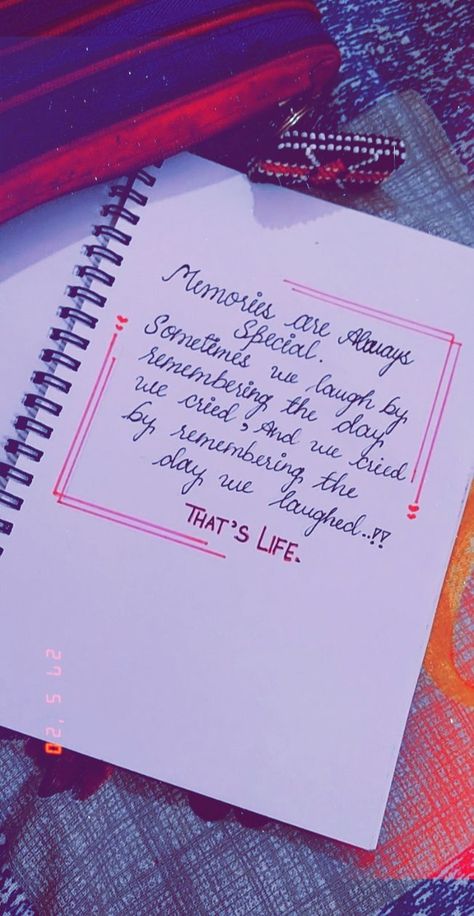 Memories are Always
Special.
Sometimes we laugh by
remembering the day
we cried, And we cried
by remembering the
day we laughed..!!
THAT'S LIFE.